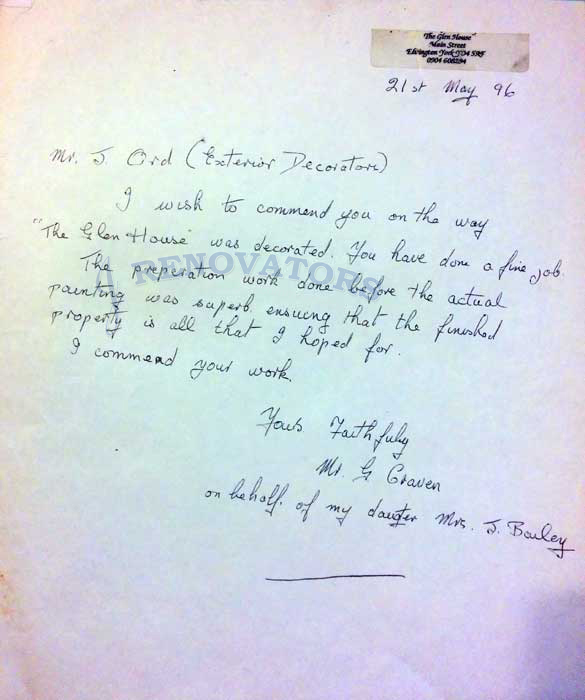 "The Glen House"
Main Street
Elvington York YO4 5RF
0904 608284
21st May 96
Mr. J Ord (Exterior Decorators)
I wish to commend you on the way
"The Glen House" was decorated. You have done a fine job.
The preperation work done before the actual
painting was superb, ensuing that the finished
property is all that I hoped for.
I commend your work.
RENOVATORS
Yous Faithfuly
Mr. G Craven
on behalf. of my daugter Mrs. J. Bailey